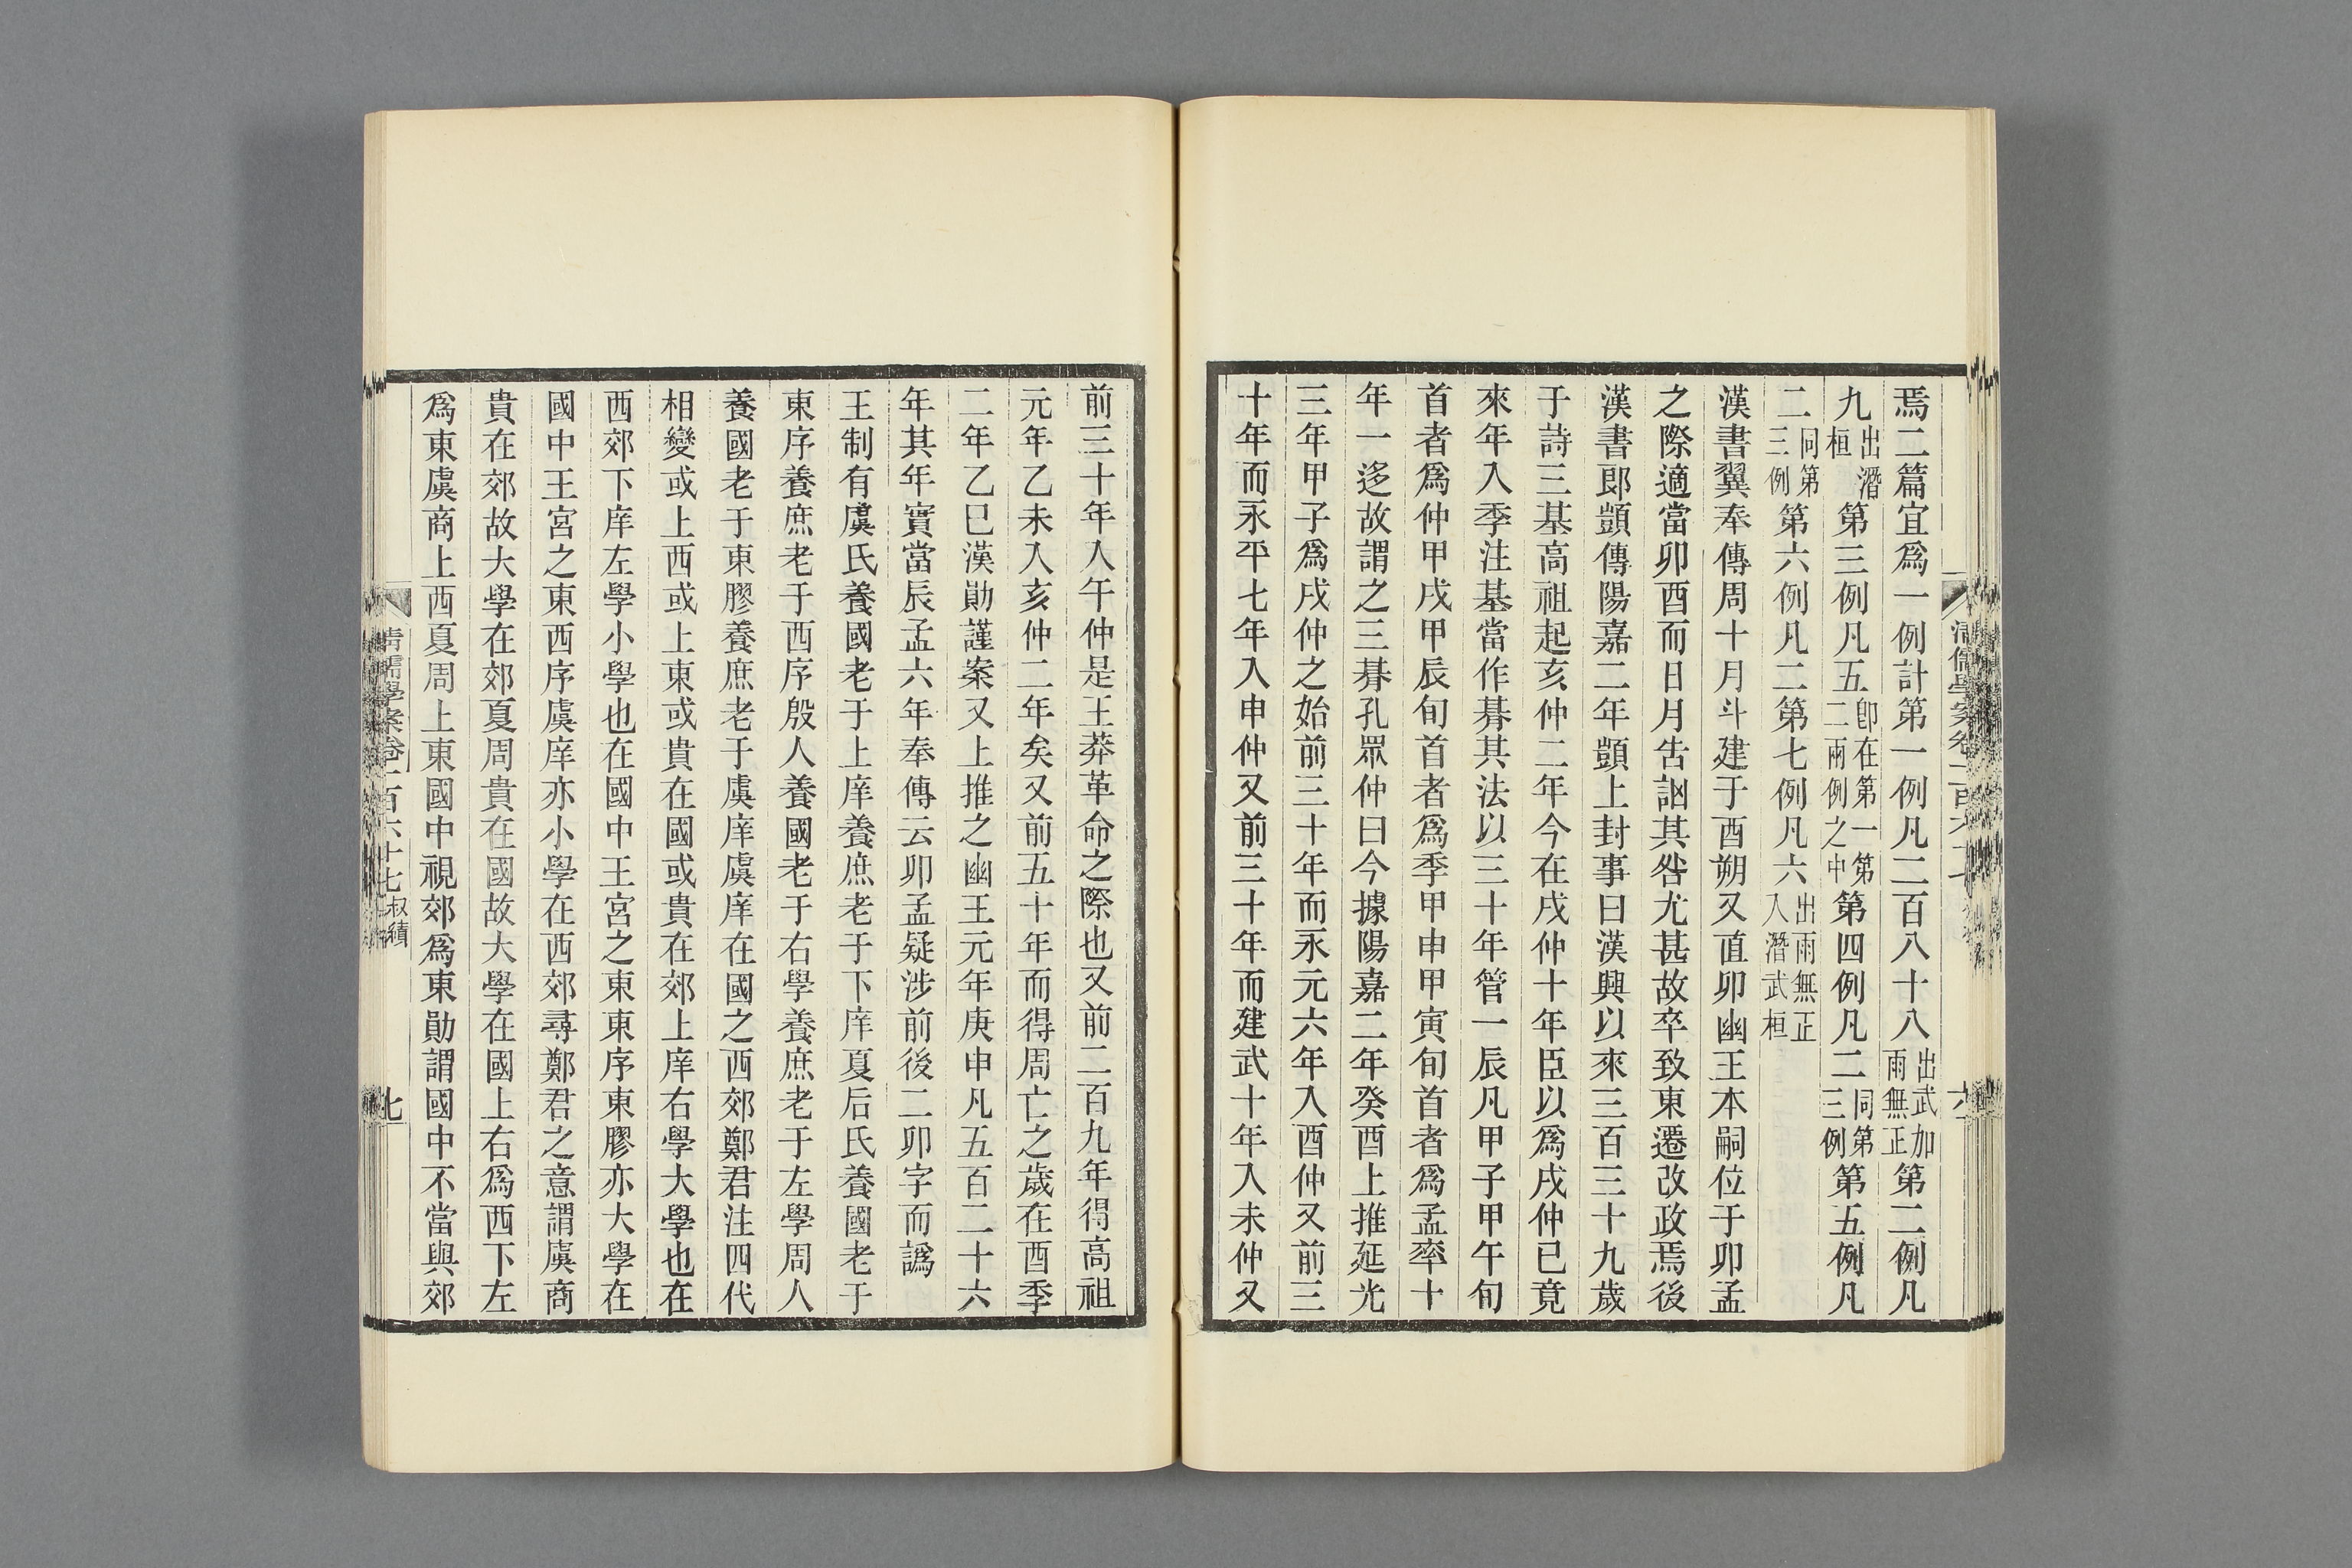 焉二篇宜爲一例計第一例凡二百八十八出武加雨無正第二例凡
九出潛桓第三例凡五卽在第一第二兩例之中第四例凡二同第三例第五例凡
二同第三例第六例凡二第七例凡六出雨無正入潛武桓
漢書翼奉傳周十月斗建于酉朔又直卯幽王本嗣位于卯孟
之際適當卯酉而日月告訩其咎尤甚故卒致東遷改政焉後
漢書郎顗傳陽嘉二年顗上封事曰漢興以來三百三十九歲
于詩三基高祖起亥仲二年今在戌仲十年臣以爲戌仲已竟
來年入季注基當作朞其法以三十年管一辰凡甲子甲午旬
首者爲仲甲戌甲辰旬首者爲季甲申甲寅旬首者爲孟率十
年一迻故謂之三朞孔眾仲曰今據陽嘉二年癸酉上推延光
三年甲子爲戌仲之始前三十年而永元六年入酉仲又前三
十年而永平七年入申仲又前三十年而建武十年入未仲又
前三十年入午仲是王莽革命之際也又前二百九年得高祖
元年乙未入亥仲二年矣又前五十年而得周亡之歲在酉季
二年乙巳漢勛謹案又上推之幽王元年庚申凡五百二十六
年其年實當辰孟六年奉傳云卯孟疑涉前後二卯字而譌
王制有虞氏養國老于上庠養庶老于下庠夏后氏養國老于
東序養庶老于西序殷人養國老于右學養庶老于左學周人
養國老于東膠養庶老于虞庠虞庠在國之西郊鄭君注四代
相變或上西或上東或貴在國或貴在郊上庠右學大學也在
西郊下庠左學小學也在國中王宮之東東序東膠亦大學在
國中王宮之東西序虞庠亦小學在西郊尋鄭君之意謂虞商
貴在郊故大學在郊夏周貴在國故大學在國上右爲西下左
爲東虞商上西夏周上東國中視郊爲東勛謂國中不當與郊
清儒學案卷二百六十七 叔績 七